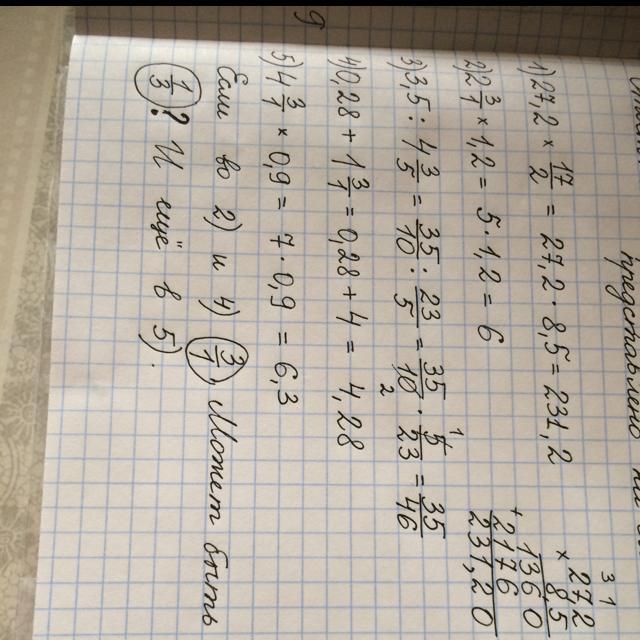 представлено
1) 27,2 × 17/2 = 27,2 · 8,5 = 231,2
2) 2 3/1 × 1,2 = 5 · 1,2 = 6
3) 3,5 : 4 3/5 = 35/10 : 23/5 = 35/10 2 · 5 1/23 = 35/46
4) 0,28 + 1 3/1 = 0,28 + 4 = 4,28
5) 4 3/1 × 0,9 = 7 · 0,9 = 6,3
Если во 2) и 4) 3/1. Может быть
1/3? И ещё в 5).
3 1
272
× 8,5
1360
+ 2176
231,20